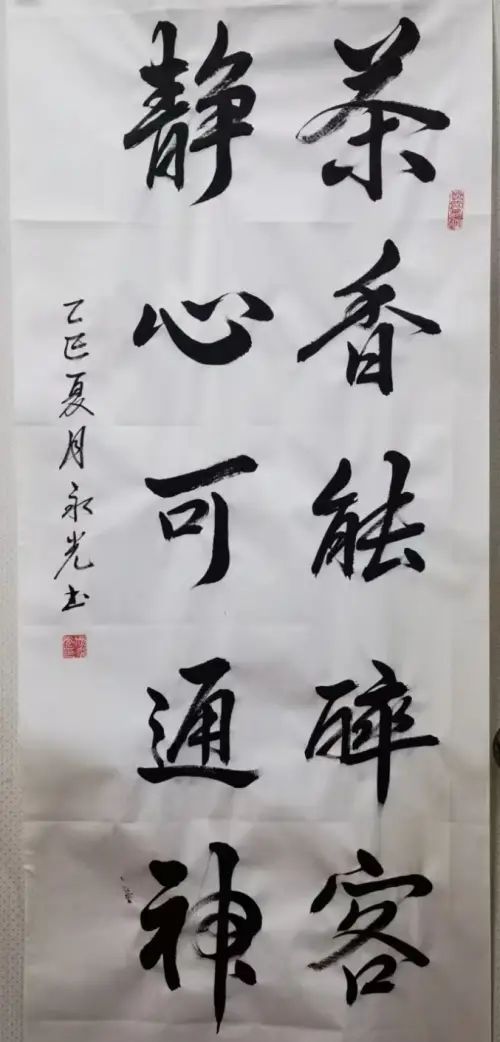 茶香能醉客
静心可通神
乙巳夏月永光书